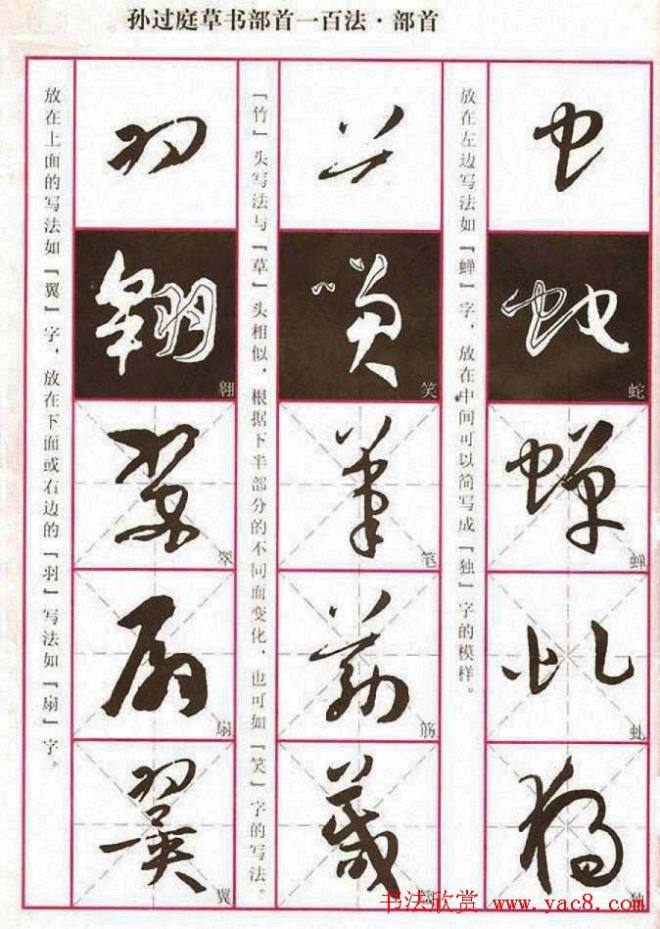 孙过庭草书部首一百法·部首
虫
蛇
蝉
虬
独
放在左边写法如「蝉」字，放在中间可以简写成「独」字的模样。
笑
笔
筋
「竹」头写法与「草」头相似，根据下半部分的不同而变化，也可如「笑」字的写法。
羽
翱
翠
扇
翼
放在上面的写法如「翼」字，放在下面或右边的「羽」写法如「扇」字。
书法欣赏 www.yac8.com